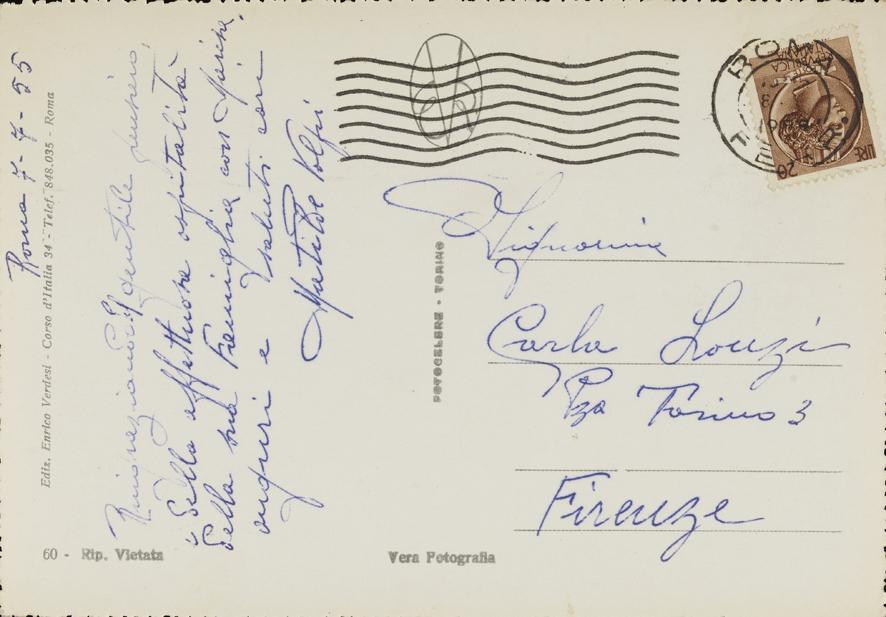 Roma 7-7-55
Ringraziandola gentile pensiero,
e della affettuosa ospitalità
della sua Famiglia con
auguri e saluti cari
Matilde Volpi
Ediz. Enrico Verdesi - Corso d'Italia 34 - Telef. 848.035 - Roma
60 - Rip. Vietata
Vera Fotografia
FOTOCELERE - TORINO
ROMA
FERR.
LIRE 20
Signorina
Carla Lonzi
Pza Torino 3
Firenze